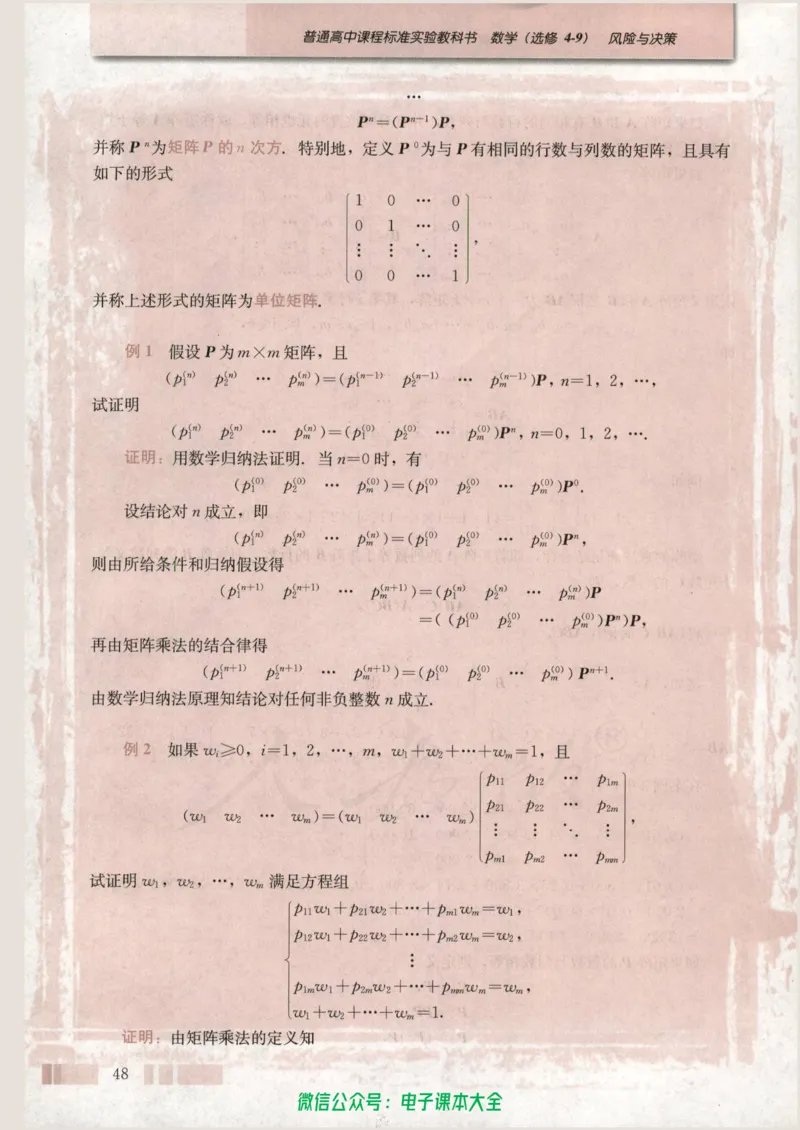 普通高中课程标准实验教科书 数学（选修 4-9） 风险与决策
…
Pⁿ=(Pⁿ⁻¹)P,
并称 Pⁿ为矩阵P 的 n 次方. 特别地，定义 P⁰为与 P 有相同的行数与列数的矩阵，且具有
如下的形式
1 0 … 0
0 1 … 0
⋮ ⋮ ⋱ ⋮ ,
0 0 … 1
并称上述形式的矩阵为单位矩阵.
例 1 假设 P 为 m×m 矩阵，且
(p₁⁽ⁿ⁾ p₂⁽ⁿ⁾ … pₘ⁽ⁿ⁾)=(p₁⁽ⁿ⁻¹⁾ p₂⁽ⁿ⁻¹⁾ … pₘ⁽ⁿ⁻¹⁾)P, n=1, 2, …,
试证明
(p₁⁽ⁿ⁾ p₂⁽ⁿ⁾ … pₘ⁽ⁿ⁾)=(p₁⁽⁰⁾ p₂⁽⁰⁾ … pₘ⁽⁰⁾)Pⁿ, n=0, 1, 2, ….
证明：用数学归纳法证明. 当 n=0 时，有
(p₁⁽⁰⁾ p₂⁽⁰⁾ … pₘ⁽⁰⁾)=(p₁⁽⁰⁾ p₂⁽⁰⁾ … pₘ⁽⁰⁾)P⁰.
设结论对 n 成立，即
(p₁⁽ⁿ⁾ p₂⁽ⁿ⁾ … pₘ⁽ⁿ⁾)=(p₁⁽⁰⁾ p₂⁽⁰⁾ … pₘ⁽⁰⁾)Pⁿ,
则由所给条件和归纳假设得
(p₁⁽ⁿ⁺¹⁾ p₂⁽ⁿ⁺¹⁾ … pₘ⁽ⁿ⁺¹⁾)=(p₁⁽ⁿ⁾ p₂⁽ⁿ⁾ … pₘ⁽ⁿ⁾)P
=( (p₁⁽⁰⁾ p₂⁽⁰⁾ … pₘ⁽⁰⁾)Pⁿ)P,
再由矩阵乘法的结合律得
(p₁⁽ⁿ⁺¹⁾ p₂⁽ⁿ⁺¹⁾ … pₘ⁽ⁿ⁺¹⁾)=(p₁⁽⁰⁾ p₂⁽⁰⁾ … pₘ⁽⁰⁾) Pⁿ⁺¹.
由数学归纳法原理知结论对任何非负整数 n 成立.
例 2 如果 wᵢ≥0, i=1, 2, …, m, w₁+w₂+…+wₘ=1, 且
p₁₁ p₁₂ … p₁ₘ
p₂₁ p₂₂ … p₂ₘ
(w₁ w₂ … wₘ)=(w₁ w₂ … wₘ) ⋮ ⋮ ⋱ ⋮ ,
pₘ₁ pₘ₂ … pₘₘ
试证明 w₁, w₂, …, wₘ 满足方程组
p₁₁w₁+p₂₁w₂+…+pₘ₁wₘ=w₁,
p₁₂w₁+p₂₂w₂+…+pₘ₂wₘ=w₂,
⋮
p₁ₘw₁+p₂ₘw₂+…+pₘₘwₘ=wₘ,
w₁+w₂+…+wₘ=1.
证明：由矩阵乘法的定义知
48
微信公众号：电子课本大全